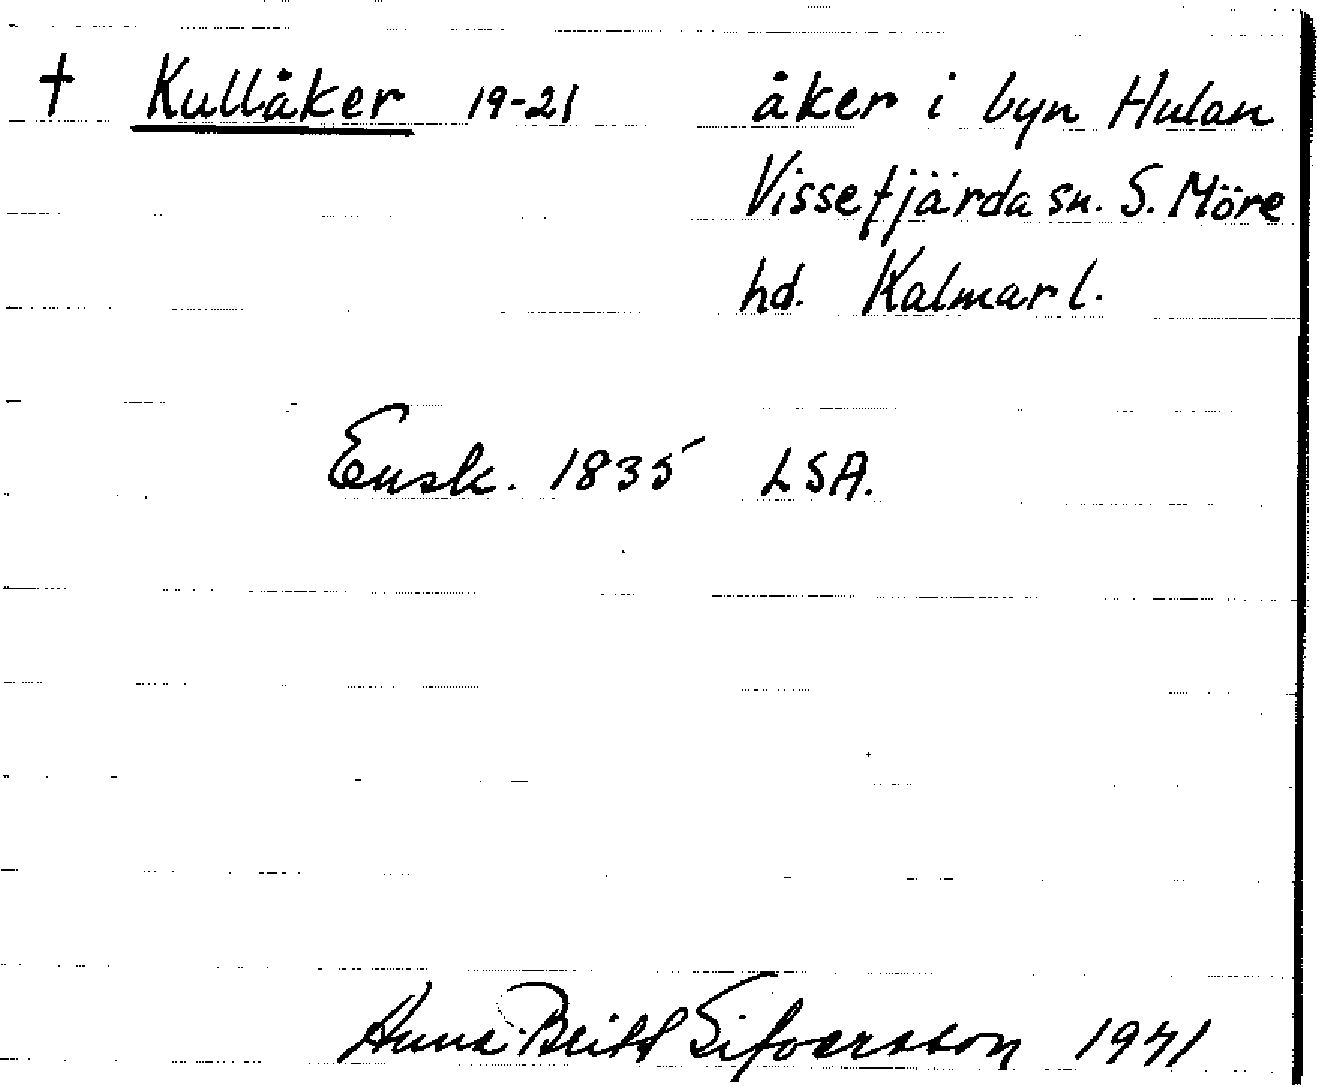 † Kullåker 19-21 åker i byn Hulan
Vissefjärda sn. S. Möre
hd. Kalmar l.
Ensk. 1835 LSA.
Anna-Britt Sifversson 1941